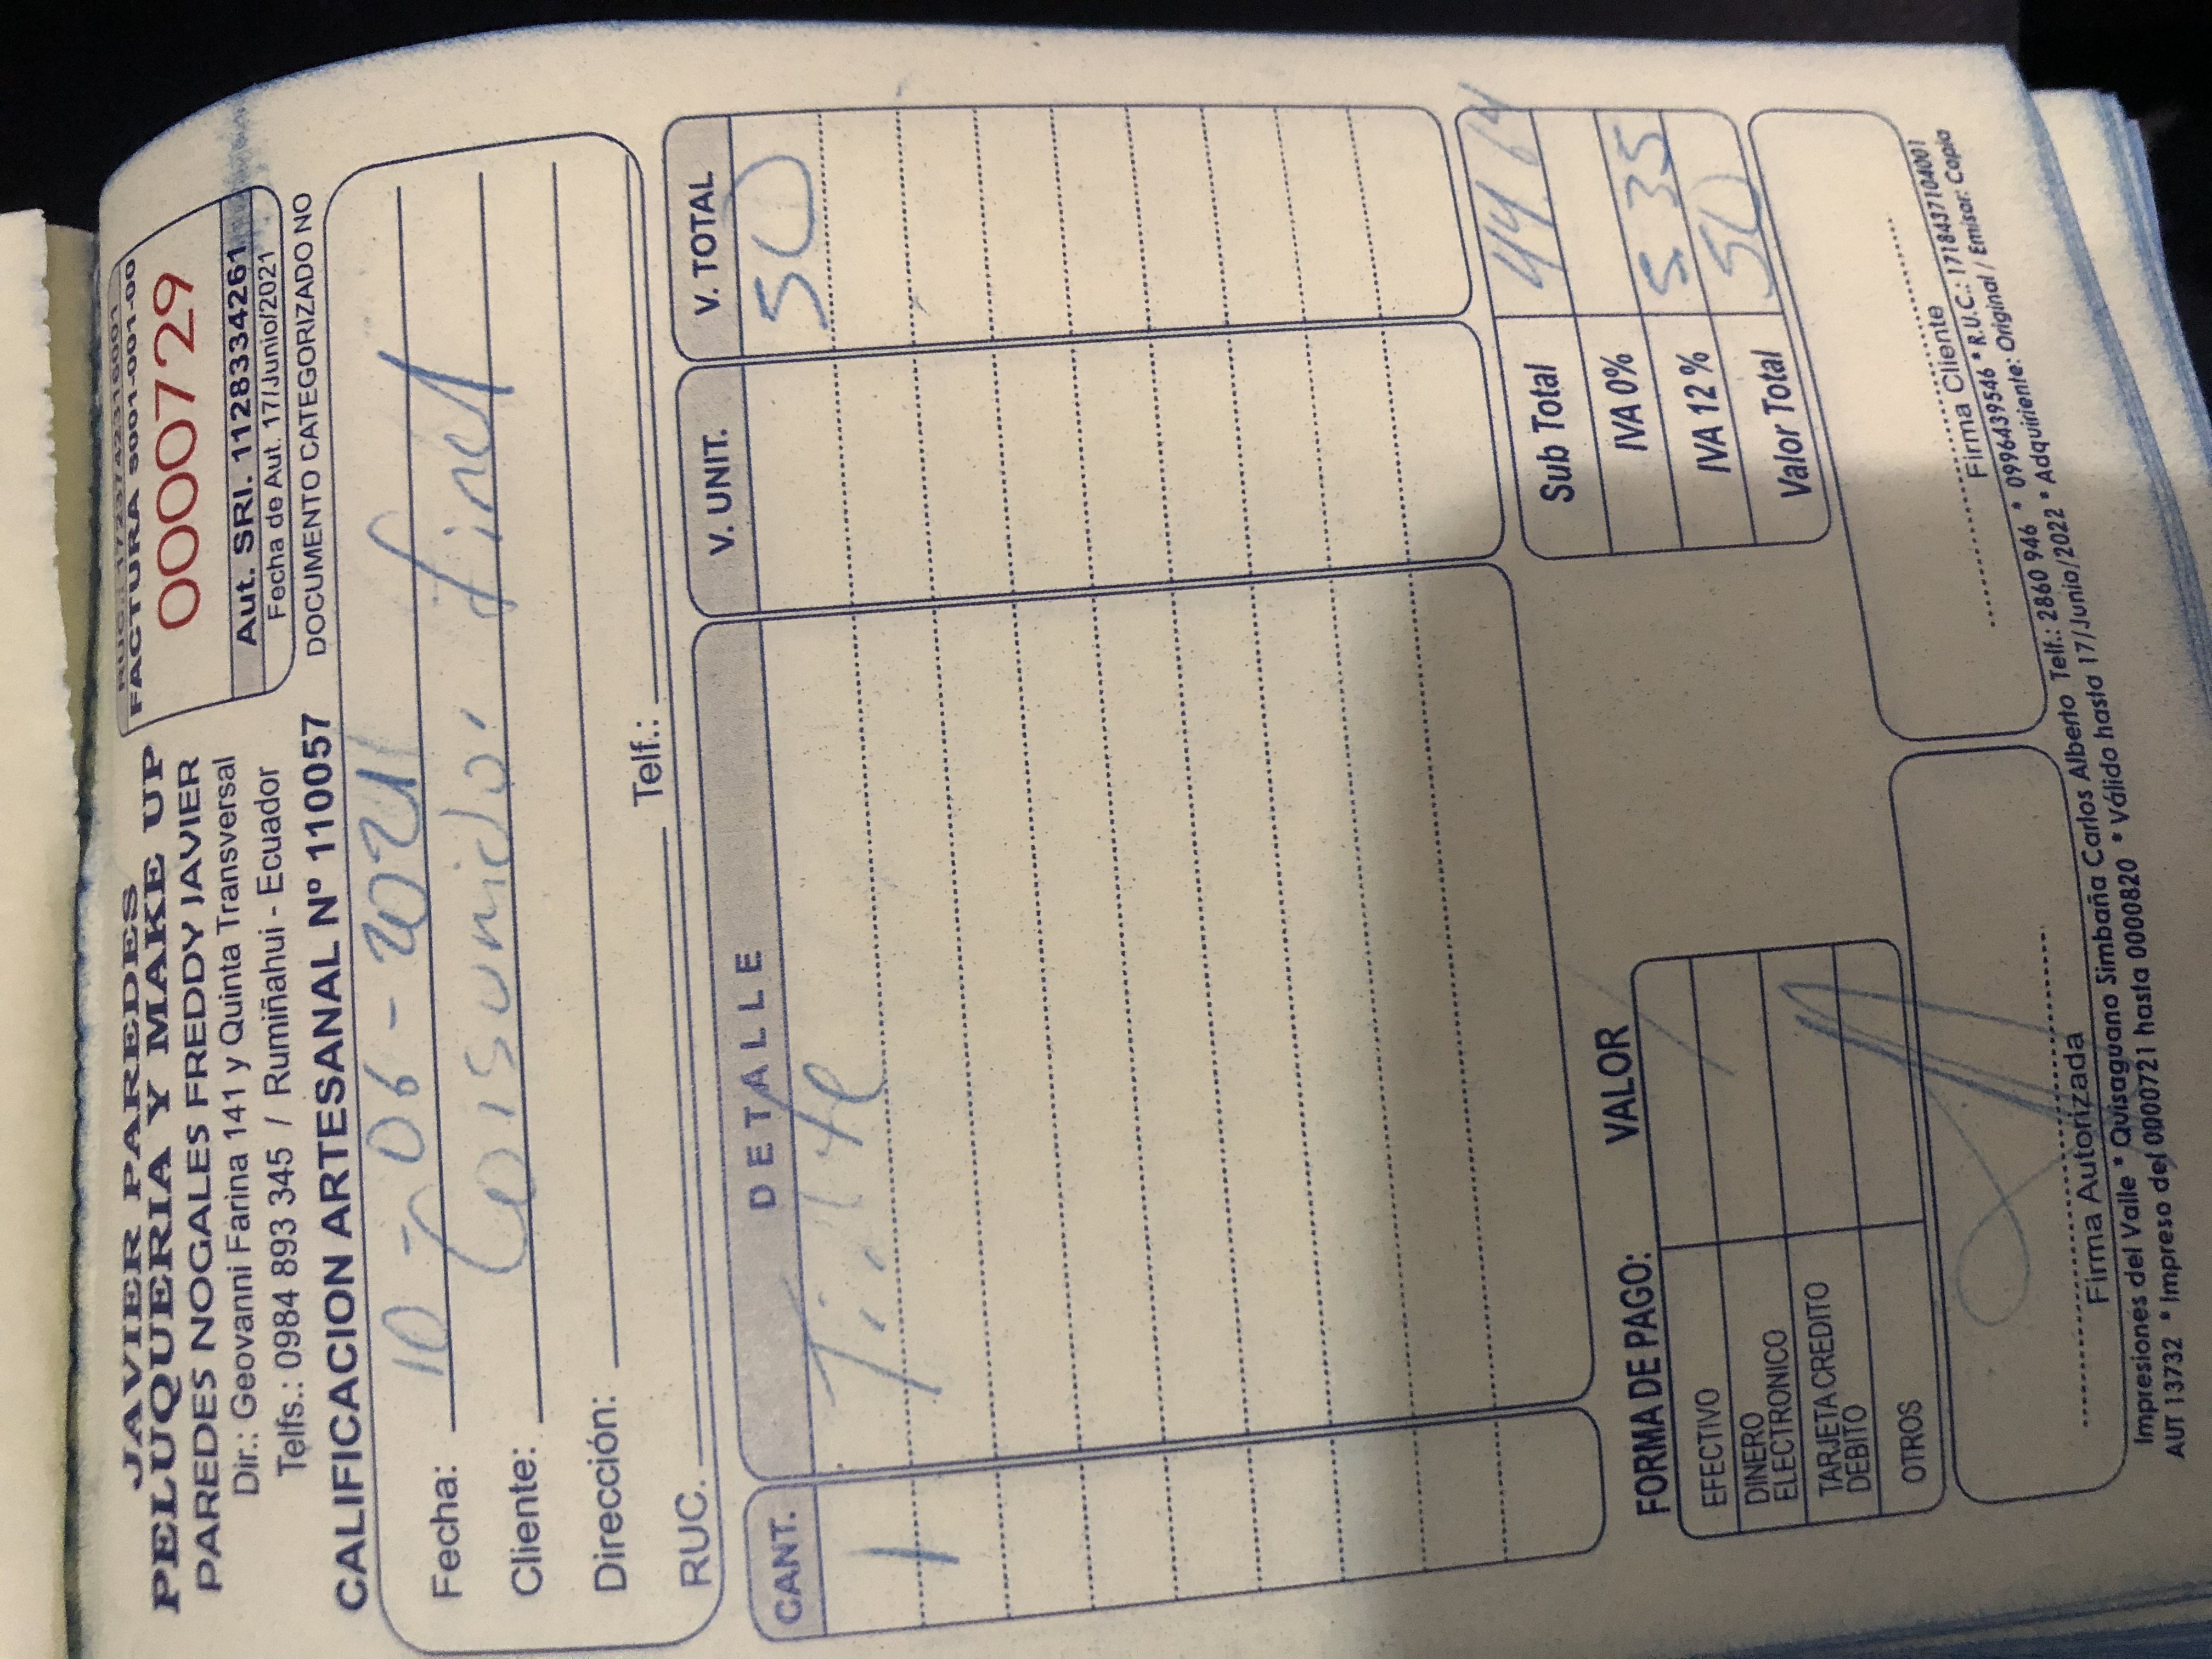 JAVIER PAREDES
PELUQUERIA Y MAKE UP
PAREDES NOGALES FREDDY JAVIER
Dir.: Geovanni Farina 141 y Quinta Transversal
Telfs.: 0984 893 345 / Rumiñahui - Ecuador
CALIFICACION ARTESANAL Nº 110057
RUC.: 1723742316001
FACTURA S001-001-00
0000729
Aut. SRI. 1128334261
Fecha de Aut. 17/Junio/2021
DOCUMENTO CATEGORIZADO NO
Fecha: 10 - 06 - 2021
Cliente: Consumidor final
Dirección:
RUC. Telf.:
CANT. DETALLE V. UNIT. V. TOTAL
1 Tinte 50
Sub Total 44.64
IVA 0%
IVA 12 % 5.35
Valor Total 50
FORMA DE PAGO: VALOR
EFECTIVO
DINERO
ELECTRONICO
TARJETA CREDITO
DEBITO
OTROS
Firma Autorizada
Firma Cliente
Impresiones del Valle * Quisaguano Simbaña Carlos Alberto Telf.: 2860 946 * 0996439546 * R.U.C.: 1718437104001
AUT 13732 * Impreso del 0000721 hasta 0000820 * Válido hasta 17/Junio/2022 * Adquiriente: Original / Emisor: Copia